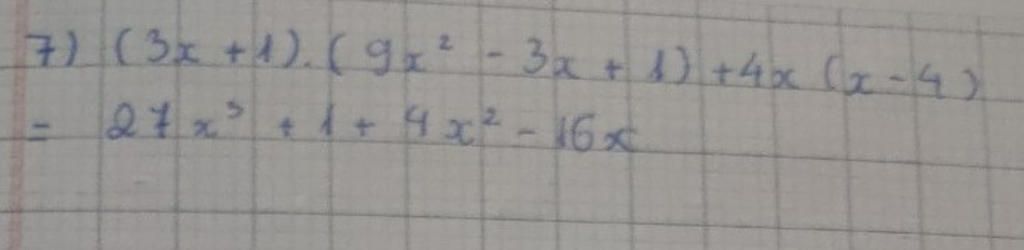 7) (3x + 1).(9x² - 3x + 1) + 4x (x - 4)
= 27x³ + 1 + 4x² - 16x